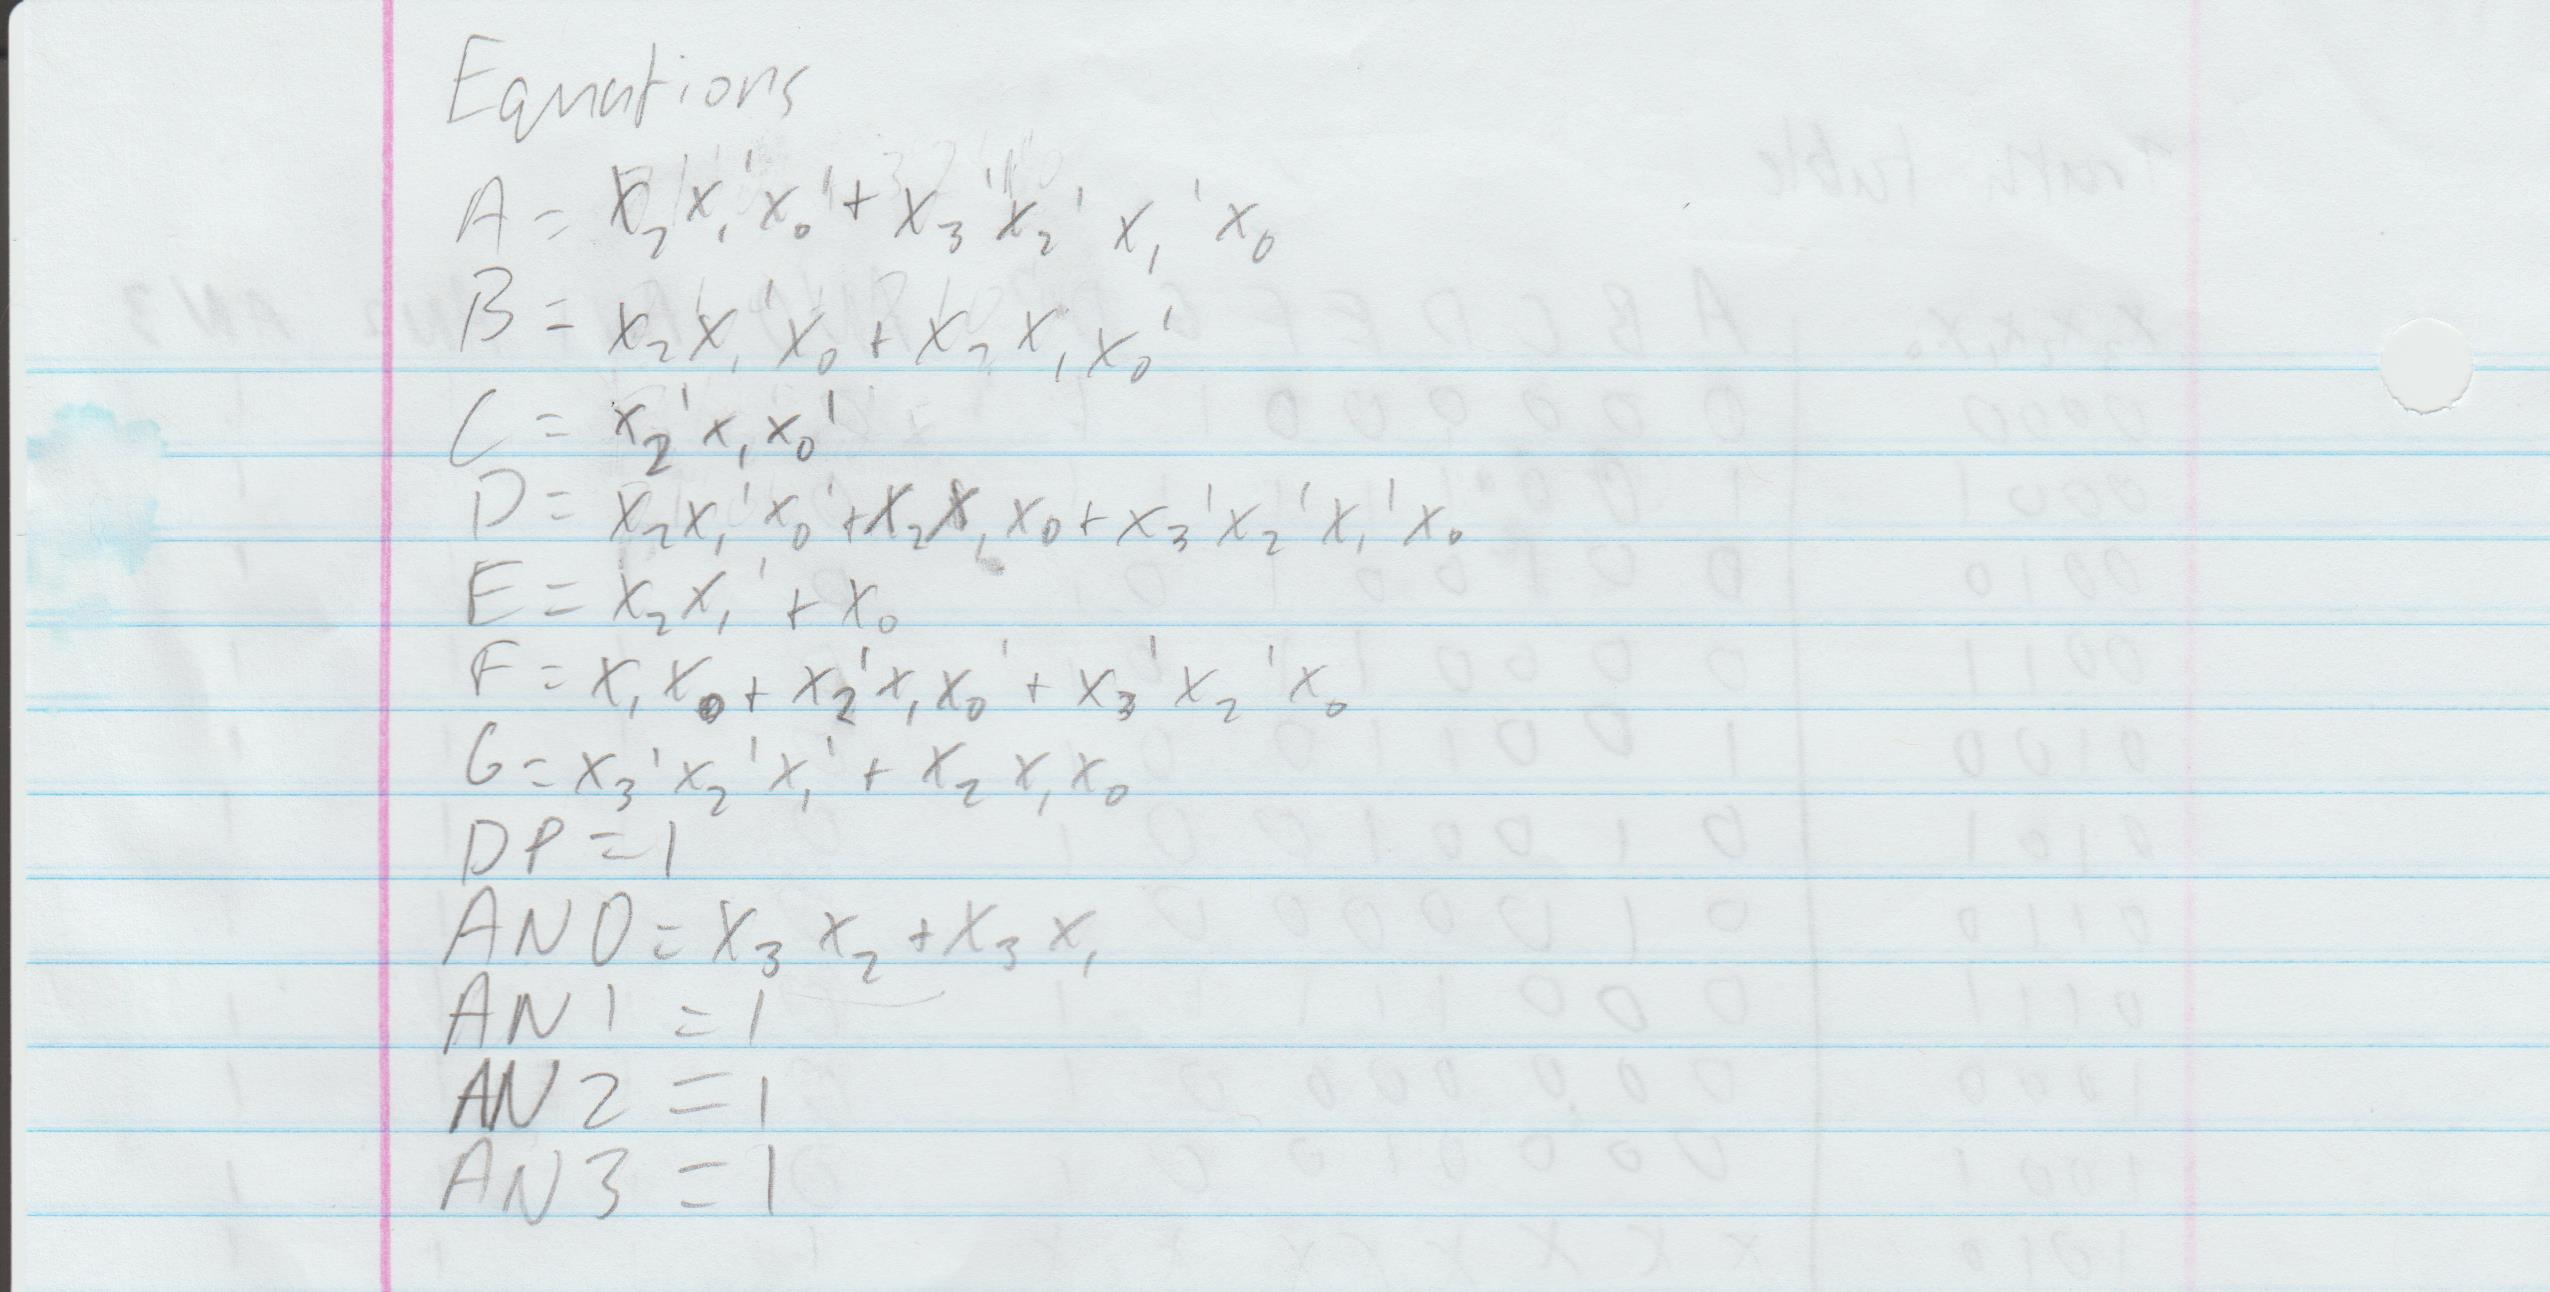 Equations
A = x₂x₁'x₀' + x₃'x₂'x₁'x₀
B = x₂x₁'x₀ + x₂x₁x₀'
C = x₂'x₁x₀'
D = x₂x₁'x₀' + x₂x₁x₀ + x₃'x₂'x₁'x₀
E = x₂x₁' + x₀
F = x₁x₀ + x₂'x₁x₀' + x₃'x₂'x₀
G = x₃'x₂'x₁' + x₂x₁x₀
DP = 1
AN0 = x₃x₂ + x₃x₁
AN1 = 1
AN2 = 1
AN3 = 1